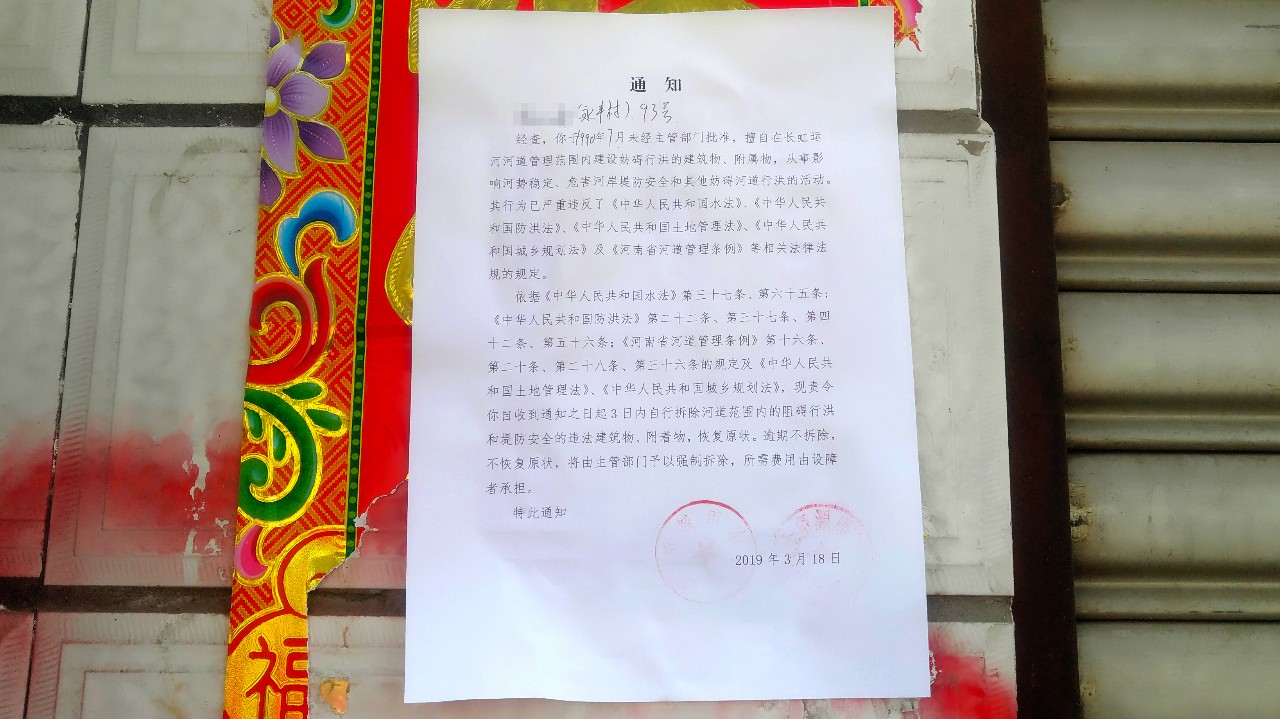 通 知
（永丰村）93号
经查，你于1990年7月未经主管部门批准，擅自在长虹运
河河道管理范围内建设妨碍行洪的建筑物、附属物，从事影
响河势稳定、危害河岸堤防安全和其他妨碍河道行洪的活动。
其行为已严重违反了《中华人民共和国水法》、《中华人民共
和国防洪法》、《中华人民共和国土地管理法》、《中华人民共
和国城乡规划法》及《河南省河道管理条例》等相关法律法
规的规定。
依据《中华人民共和国水法》第三十七条、第六十五条；
《中华人民共和国防洪法》第二十二条、第二十七条、第四
十二条、第五十六条；《河南省河道管理条例》第十六条、
第二十条、第二十八条、第三十六条的规定及《中华人民共
和国土地管理法》、《中华人民共和国城乡规划法》，现责令
你自收到通知之日起3日内自行拆除河道范围内的阻碍行洪
和堤防安全的违法建筑物、附着物，恢复原状。逾期不拆除，
不恢复原状，将由主管部门予以强制拆除，所需费用由设障
者承担。
特此通知
2019年3月18日
福